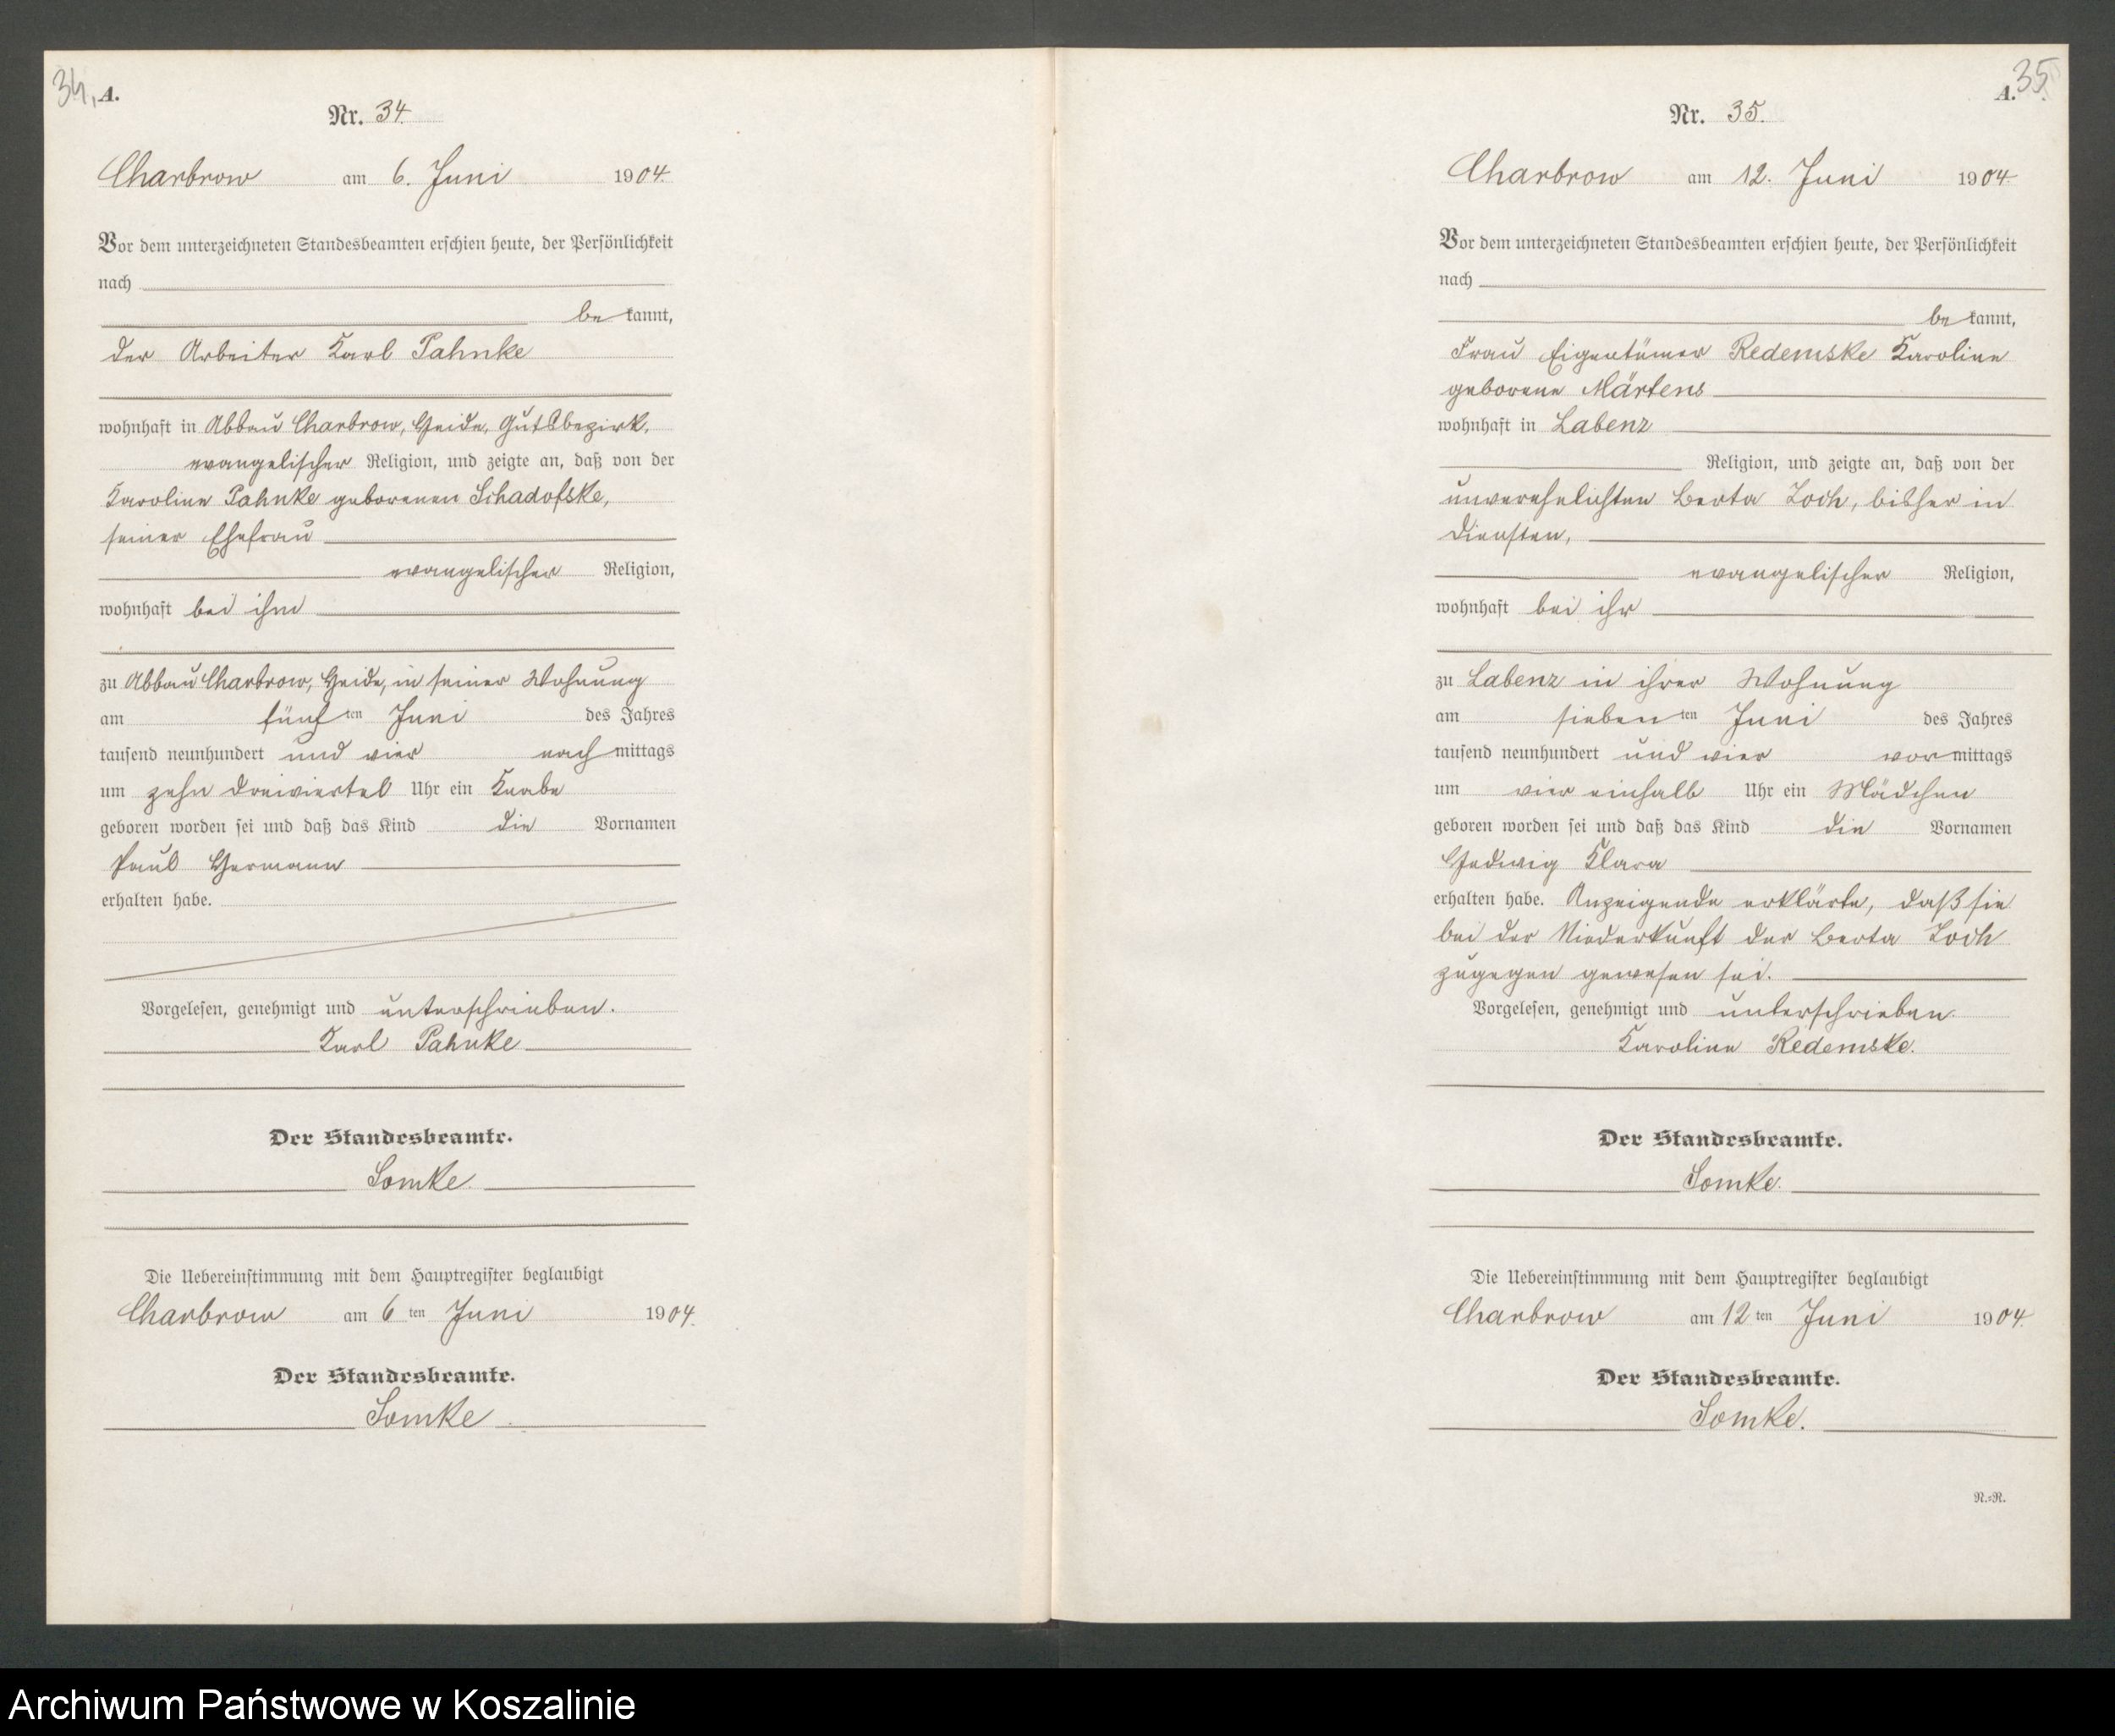 34, A.
Nr. 34.
Charbrow am 6. Juni 1904.
Vor dem unterzeichneten Standesbeamten erschien heute, der Persönlichkeit
nach
be kannt,
der Arbeiter Karl Pahnke
wohnhaft in Abbau Charbrow, Heide, Gutsbezirk,
evangelischer Religion, und zeigte an, daß von der
Karoline Pahnke geborenen Schadofske,
seiner Ehefrau
evangelischer Religion,
wohnhaft bei ihm
zu Abbau Charbrow, Heide, in seiner Wohnung
am fünf ten Juni des Jahres
tausend neunhundert und vier nach mittags
um zehn dreiviertel Uhr ein Knabe
geboren worden sei und daß das Kind die Vornamen
Paul Hermann
erhalten habe.
Vorgelesen, genehmigt und unterschrieben.
Karl Pahnke
Der Standesbeamte.
Somke.
Die Uebereinstimmung mit dem Hauptregister beglaubigt
Charbrow am 6 ten Juni 1904.
Der Standesbeamte.
Somke.
A. 35.
Nr. 35.
Charbrow am 12. Juni 1904.
Vor dem unterzeichneten Standesbeamten erschien heute, der Persönlichkeit
nach
be kannt,
Frau Eigentümer Redemske Karoline
geborene Märtens
wohnhaft in Labenz
Religion, und zeigte an, daß von der
unverehelichten Berta Loch, bisher in
Diensten,
evangelischer Religion,
wohnhaft bei ihr
zu Labenz in ihrer Wohnung
am sieben ten Juni des Jahres
tausend neunhundert und vier vor mittags
um vier einhalb Uhr ein Mädchen
geboren worden sei und daß das Kind die Vornamen
Hedwig Klara
erhalten habe. Anzeigende erklärte, daß sie
bei der Niederkunft der Berta Loch
zugegen gewesen sei.
Vorgelesen, genehmigt und unterschrieben.
Karoline Redemske.
Der Standesbeamte.
Somke.
Die Uebereinstimmung mit dem Hauptregister beglaubigt
Charbrow am 12 ten Juni 1904.
Der Standesbeamte.
Somke.
N.=R.
Archiwum Państwowe w Koszalinie